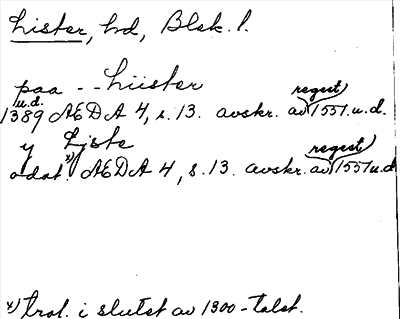 Lister, hd, Blek. l.
paa - - Liister
u.d. regest
1389 AEDA 4, s. 13. avskr. av 1551 u.d.
y Liste
regest
odat. x) AEDA 4, s. 13. avskr. av 1551 u.d
x) trol. i slutet av 1300-talet.